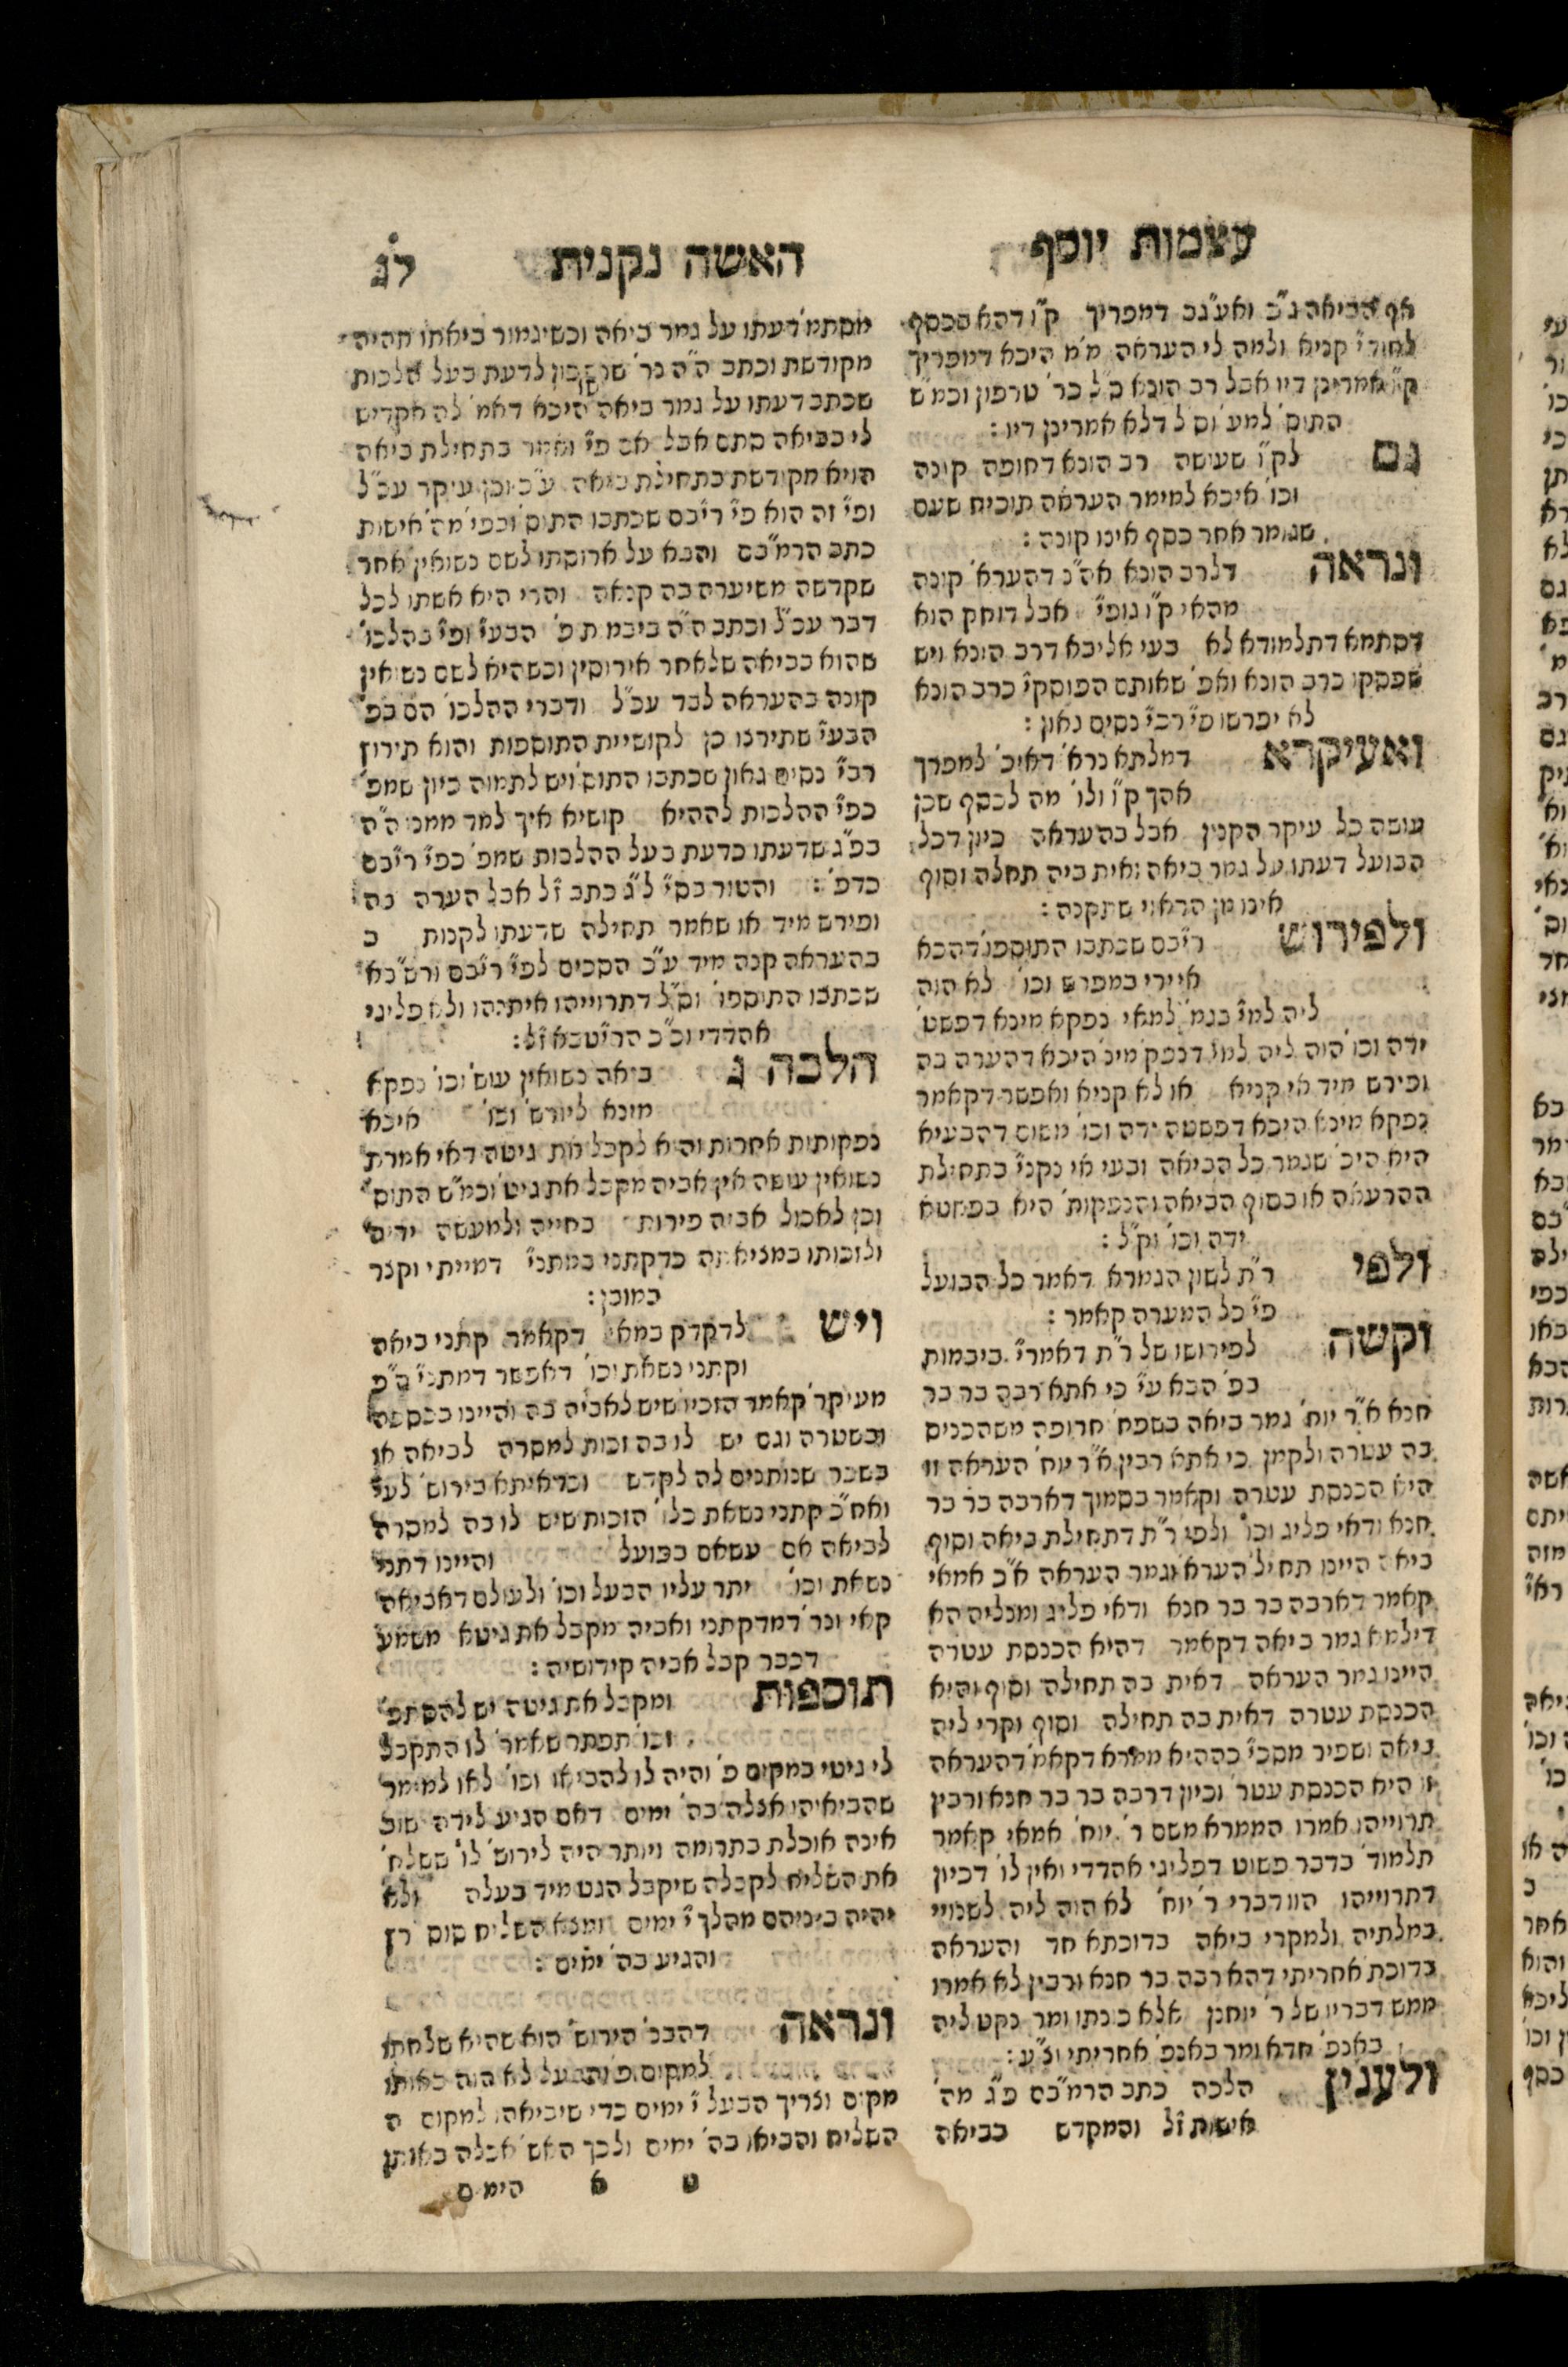 עצמות יוסף
האשה נקנית
לג
אף הביאה ג"כ ואע"גב דמפריך ק"ו דהא בכסף
לחודי' קניא ולמה לי העראה מ"מ היכא דמפריך
ק"ו אמרינן דיו אבל רב הונא ס"ל כר' טרפון וכמ"ש
התוס' למע' וס"ל דלא אמרינן דיו :
גם לק"ו שעושה רב הונא דחופה קונה
וכו' איכא למימר העראה תוכיח שעם
שגומר אחר כסף אינו קונה :
ונראה דלרב הונא אה"נ דהערא' קונה
מהאי ק"ו גופי' אבל דוחק הוא
דסתמא דתלמודא לא בעי אליבא דרב הונא ויש
שפסקו כרב הונא ואפ' שאותם הפוסקי' כרב הונא
לא יפרשו פי' רבי' נסים גאון :
ואעיקרא דמלתא נרא' דאיכ' למפרך
אהך ק"ו ולו' מה לכסף שכן
עושה כל עיקר הקנין אבל בהעראה כיון דכל
הבועל דעתו על גמר ביאה ואית ביה תחלה וסוף
אינו מן הראוי שתקנה :
ולפירוש ריב"ם שכתבו התוספו' דהכא
איירי במפרש וכו' לא הוה
ליה למי' בגמ' למאי נפקא מינא דפשט'
ידה וכו' הוה ליה למי' דנפק' מינ' היכא דהערה בה
ופירש מיד אי קניא או לא קניא ואפשר דקאמר
נפקא מינא היכא דפשטה ידה וכו' משום דהבעיא
היא היכ' שגמר כל הביאה ובעי אי נקני' בתחילת
ההרעאה או בסוף הביאה והנפקות' היא בפשטא
ידה וכו' וק"ל :
ולפי ר"ת לשון הגמרא דאמר כל הבועל
פי' כל המערה קאמר :
וקשה לפירושו של ר"ת דאמרי' ביבמות
בפ' הבא ע"י כי אתא רבה בר בר
חנא א"ר יוח' גמר ביאה בשפח' חרופה משהכניס
בה עטרה ולקמן כי אתא רבין א"ר יוח' העראה זו
היא הכנסת עטרה וקאמר בסמוך דארבה בר בר
חנא ודאי פליג וכו' ולפי ר"ת דתחילת ביאה וסוף
ביאה היינו תחיל' הערא' וגמר העראה א"כ אמאי
קאמר דארבה בר בר חנא ודאי פליג ומנליה הא
דילמא גמר ביאה דקאמר דהיא הכנסת עטרה
היינו גמר העראה דאית בה תחילה וסוף והיא
הכנסת עטרה דאית בה תחילה וסוף וקרי ליה
ביאה ושפיר מסבי' כההיא ממרא דקאמ' דהעראה
זו היא הכנסת עטר' וכיון דרבה בר בר חנא ורבין
תרוייהו אמרו הממרא משם ר' יוח' אמאי קאמר
תלמוד' בדבר פשוט דפליגי אהדדי ואין לו' דכיון
דתרוייהו הוו דברי ר' יוח' לא הוה ליה לשנויי
במלתיה ולמקרי ביאה בדוכתא חד והעראה
בדוכת' אחריתי דהא רבה בר חנא ורבין לא אמרו
ממש דבריו של ר' יוחנן אלא כונתו ומר נקט ליה
באנפ' חדא ומר באנפ' אחריתי וצ"ע :
ולענין הלכה כתב הרמ"בם פ"ג מה'
אישות ז"ל והמקדש בביאה
מסתמ' דעתו על גמר ביאה וכשיגמור ביאתו תהיה
מקודשת וכתב ה"ה נר' שרש בון לדעת בעל הלכות
שכתב דעתו על גמר ביאה היכא דאמ' לה אקדיש
לי בביאה סתם אבל אם פי' ואמר בתחילת ביאה
הויא מקודשת בתחילת ביאה ע"כ וכן עיקר עכ"ל
ופי' זה הוא פי' ריב"ם שכתבו התוס' ובפי' מה' אישות
כתב הרמ"בם והבא על ארוסתו לשם נשואין אחר
שקדשה משיערה בה קנאה והרי היא אשתו לכל
דבר עכ"ל וכתב ה"ה ביבמת פ' הבע"י ופי' בהלכו'
שהוא בביאה שלאחר אירוסין וכשהיא לשם נשואין
קונה בהעראה לבד עכ"ל ודברי ההלכו' הם בפ'
הבע"י שתירצו כן לקושיית התוספות והוא תירוץ
רבי' נסים גאון שכתבו התוס' ויש לתמוה כיון שמפ'
כפי' ההלכות לההיא קושיא איך למד ממנו ה"ה
בפ"ג שדעתו כדעת בעל ההלכות שמפ' כפי' ריב"ם
כדפ' : והטור בסי' ל"ג כתב ז"ל אבל הערה בה
ופירש מיד או שאמר תחילה שדעתו לקנות כ
בהעראה קנה מיד ע"כ הסכים לפי' ריב"ם ורש"בא
שכתבו התוספו' וס"ל דתרוייהו איתנהו ולא פליגי
אהדדי וכ"כ הריטב"א ז"ל :
הלכה ג ביאה נשואין עוש' וכו' נפקא
מינא ליורש' וכו' איכא
נפקותות אחרות והיא לקבל את גיטה דאי אמרת
נשואין עושה אין אביה מקבל את גיט' וכמ"ש התוס'
וכן לאכול אביה פירות בחייה ולמעשה ידיה
ולזכותו במציאתה כדקתני במתני' דמייתי וקצר
במובן :
ויש לדקדק במאי דקאמר קתני ביאה
וקתני נשאת וכו' דאפשר דמתני' ה"פ
מעיקר' קאמר הזכיו' שיש לאביה בה והיינו בכספה
ובשטרה וגם יש לו בה זכות למסרה לביאה או
בשכר שנותנים לה לקדש וכדאיתא בירוש' לעי'
ואח"כ קתני נשאת כלו' הזכות שיש לו בה למסרה
לביאה אם עשאם כבועל והיינו דתני
נשאת וכו' יתר עליו הבעל וכו' ולעולם דאביאה
קאי ונר' דמדקתני ואביה מקבל את גיטא משמע
דכבר קבל אביה קידושיה :
תוספות ומקבל את גיטה יש להסתפ'
וכו' תפתר שאמר לו התקבל
לי גיטי במקום פ' והיה לו להביאו וכו' לאו למימר
שהביאיהו אצלה בה' ימים דאם הגיע לידה שוב
אינה אוכלת בתרומה ויותר היה לירוש' לו' ששלח'
את השליח לקבלה שיקבל הגט מיד בעלה ולא
יהיה ביניהם מהלך י' ימים ומצא השליח סוס רץ
והגיע בה' ימים :
ונראה דהבנ' הירוש' הוא שהיא שלחתו
למקום פ' והבעל לא הוה באותו
מקום וצריך הבעל י' ימים כדי שיביאהו למקום ה
השליח והביאו בה' ימים ולכך האש' אכלה באותן
ט א הימים